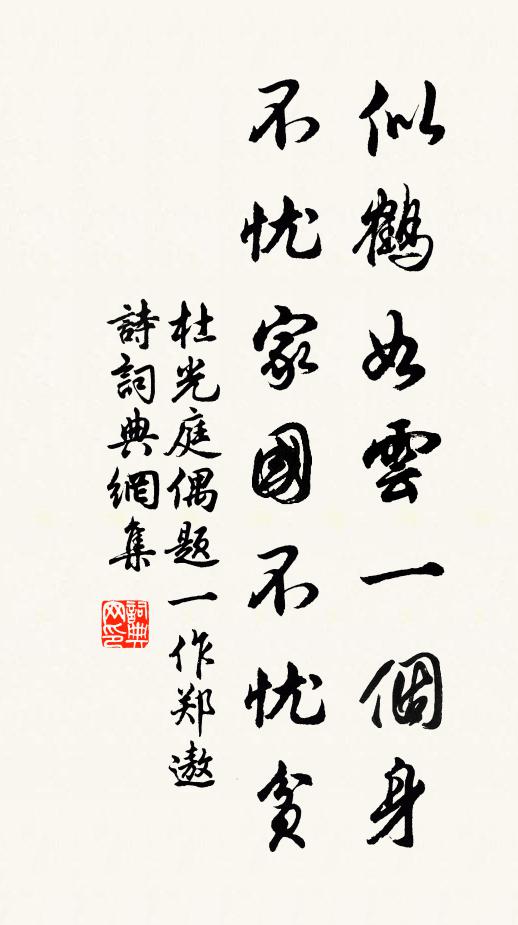 似鶴如雲一個身
不忧家國不忧貧
杜光庭偶题一作郑遨
詩詞典網集
詞典网印